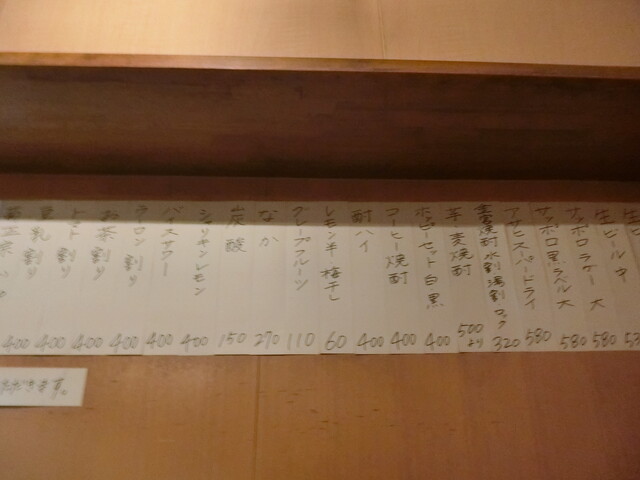 生ビール 中 580
サッポロラガー 大 580
サッポロ黒ラベル 大 580
アサヒスーパードライ 580
焼酎水割 湯割 ロック 320
芋 麦焼酎 500より
ホッピーセット 白 黒 400
コーヒー焼酎 400
酎ハイ 400
レモン半・梅干し 60
グレープフルーツ 110
なか 270
炭酸 150
シャリキンレモン 400
バイスサワー 400
ウーロン割り 400
お茶割り 400
トマト割り 400
豆乳割り 400
400
ます。